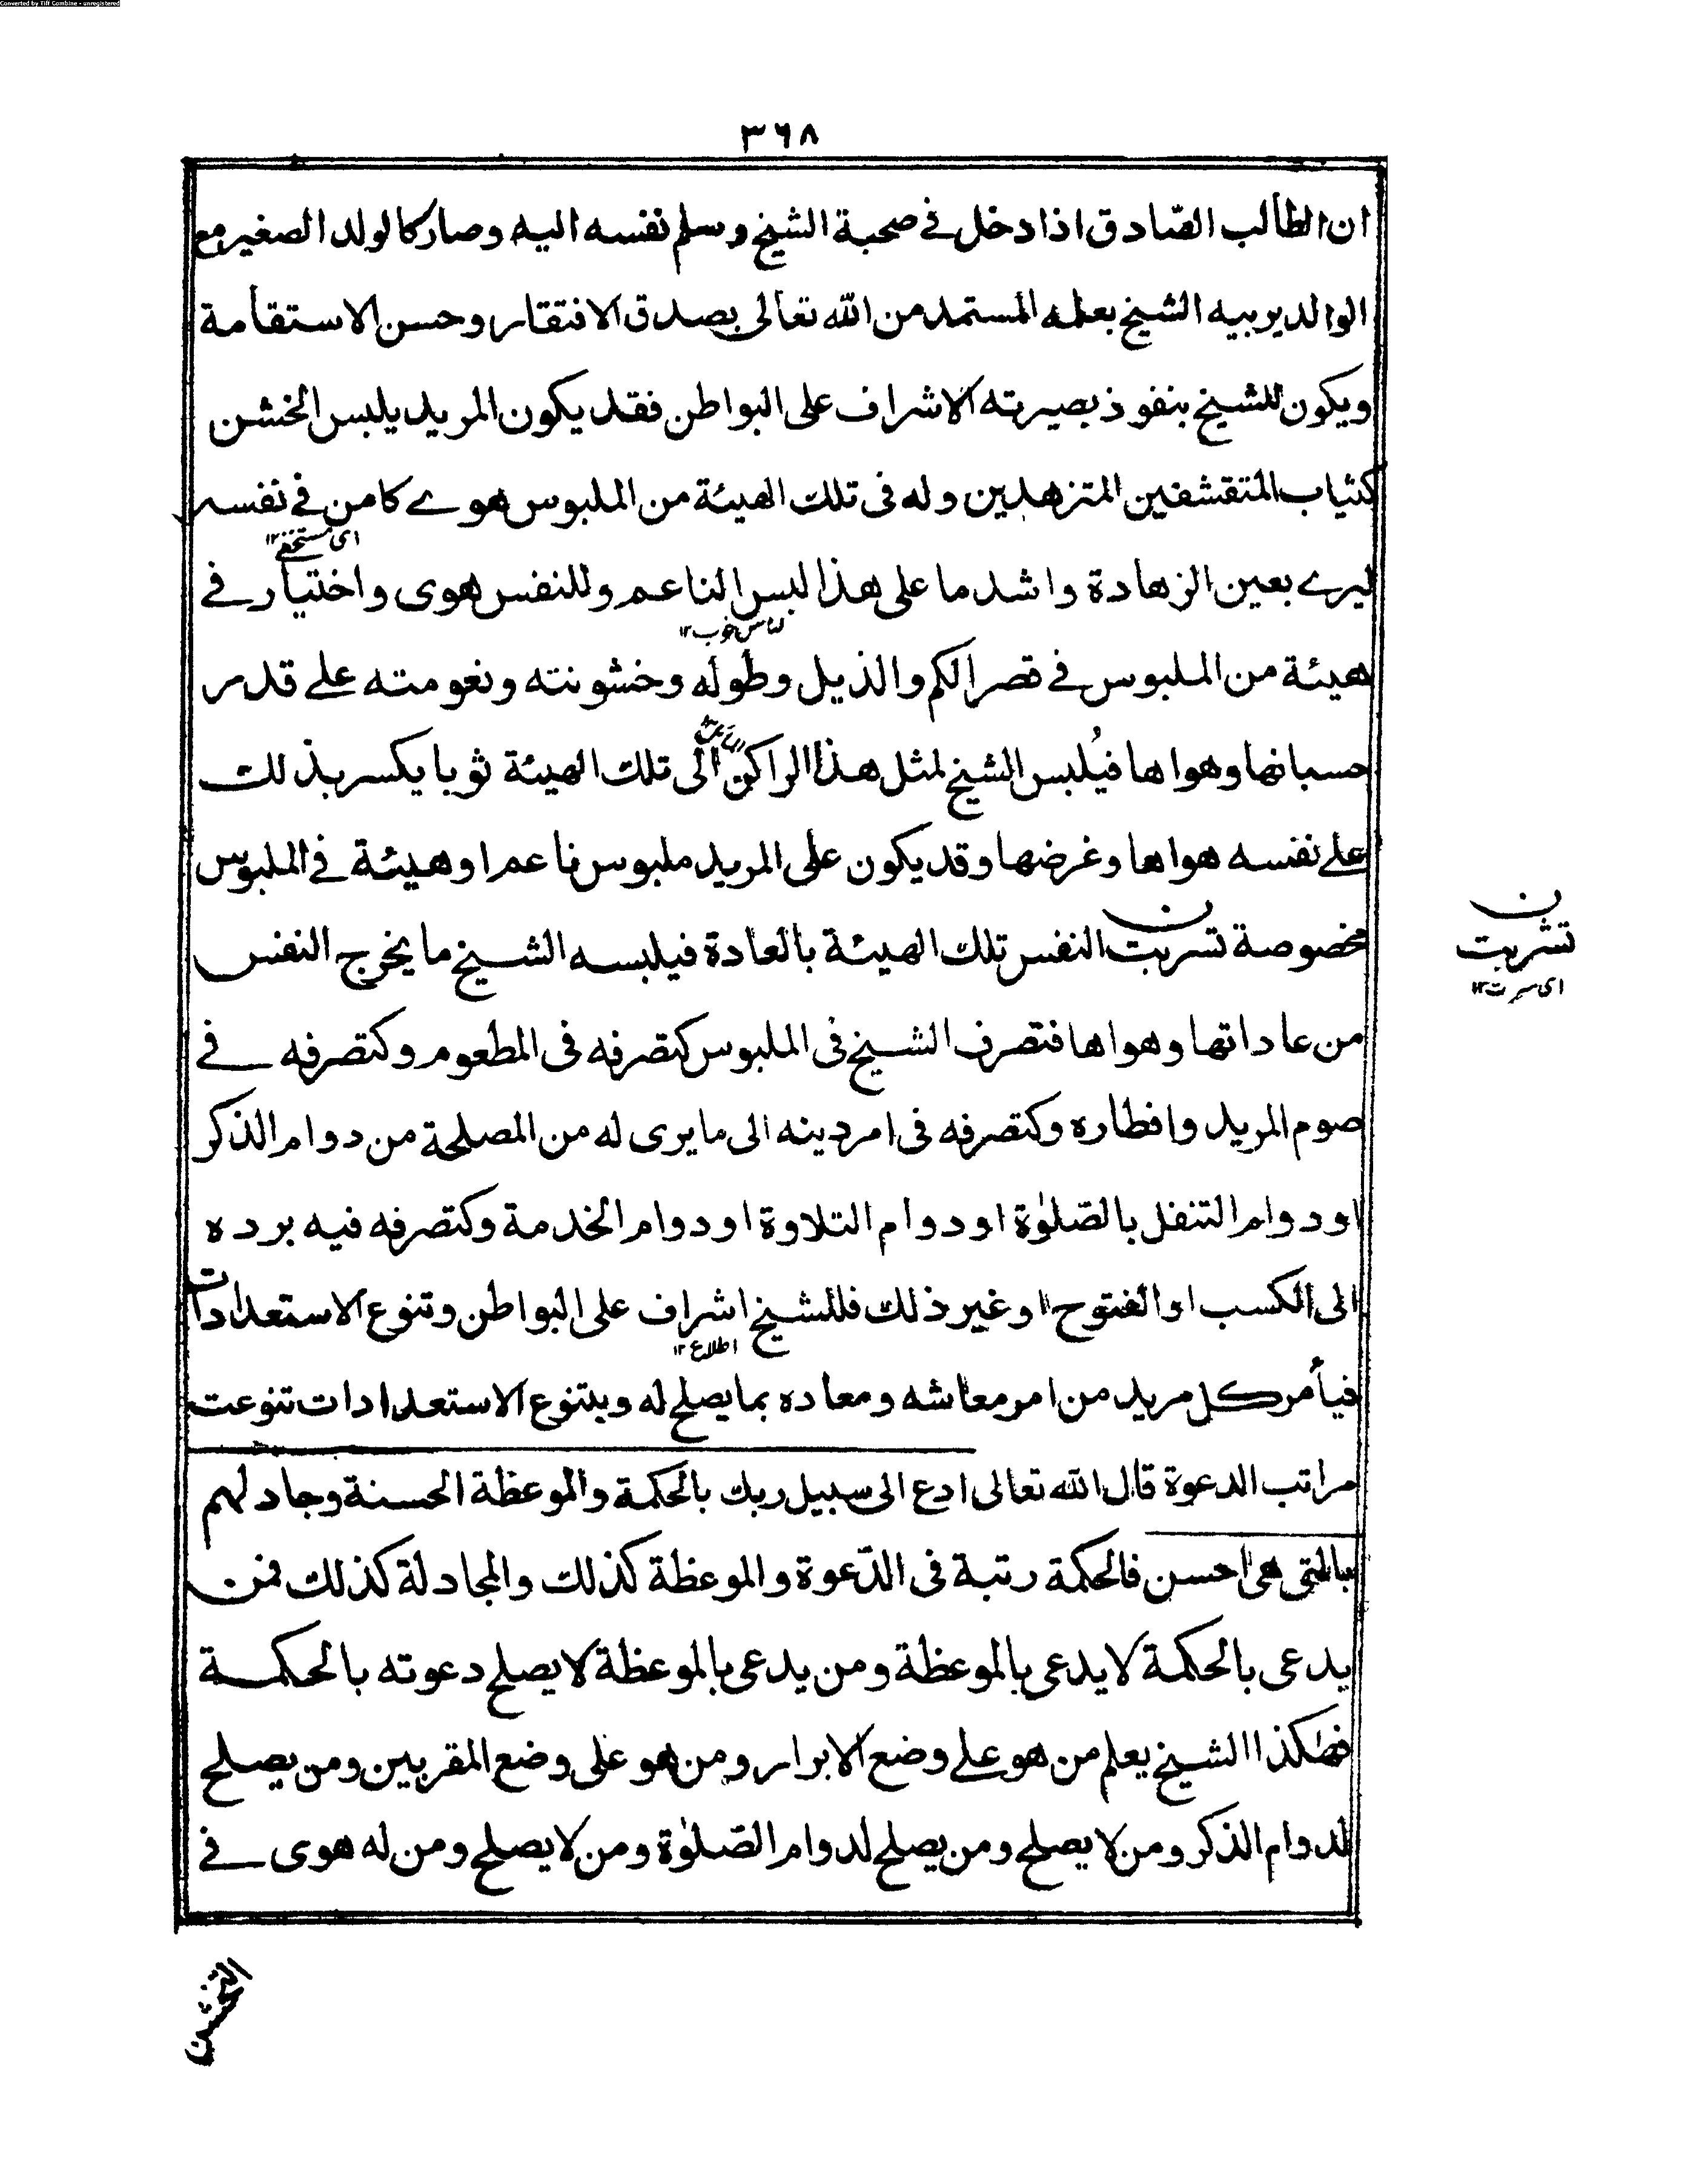 Converted by Tiff Combine - unregistered
٣٦٨
ان الطالب الصّادق اذا دخل في صحبة الشيخ وسلم نفسه اليه وصار كالولد الصغير مع
الوالد يربيه الشيخ بعلمه المستمد من الله تعالى بصدق الافتقار وحسن الاستقامة
ويكون للشيخ بنفوذ بصيرته الاشراف على البواطن فقد يكون المريد يلبس الخشن
كثياب المتقشفين المتزهدين وله في تلك الهيئة من الملبوس هوے كامن في نفسه
اى مستخفے ١٢
ليرے بعين الزهادة واشد ما على هذا لبس الناعم وللنفس هوى واختيار في
لباس خوب ١٢
هيئة من الملبوس في قصر الكم والذيل وطوله وخشونته ونعومته علے قدر
حسبانها وهواها فيُلبس الشيخ لمثل هذا الراكن الى تلك الهيئة ثوبا يكسر بذلك
علے نفسه هواها وغرضها وقد يكون على المريد ملبوس ناعم او هيئة في الملبوس
مخصوصة تسربت النفس تلك الهيئة بالعادة فيلبسه الشيخ ما يخرج النفس
ن
تشربت
اى سرت ١٢
من عاداتها وهواها فتصرف الشيخ في الملبوس كتصرفه في المطعوم وكتصرفه في
صوم المريد وافطاره وكتصرفه في امر دينه الى ما يرى له من المصلحة من دوام الذكر
او دوام التنفل بالصّلوٰة او دوام التلاوة او دوام الخدمة وكتصرفه فيه برده
الى الكسب او الفتوح او غير ذلك فللشيخ اشراف على البواطن وتنوع الاستعدادات
اطلاع ١٢
فيأمر كل مريد من امر معاشه ومعاده بما يصلح له وبتنوع الاستعدادات تنوعت
مراتب الدعوة قال الله تعالى ادع الى سبيل ربك بالحكمة والموعظة الحسنة وجادلهم
بالتي هي احسن فالحكمة رتبة في الدّعوة والموعظة كذلك والمجادلة كذلك فمن
يدعى بالحكمة لا يدعى بالموعظة ومن يدعى بالموعظة لا يصلح دعوته بالحكمة
فهٰكذا الشيخ يعلم من هو علے وضع الابرار ومن هو على وضع المقربين ومن يصلح
لدوام الذكر ومن لا يصلح ومن يصلح لدوام الصّلوٰة ومن لا يصلح ومن له هوى في
التخشن